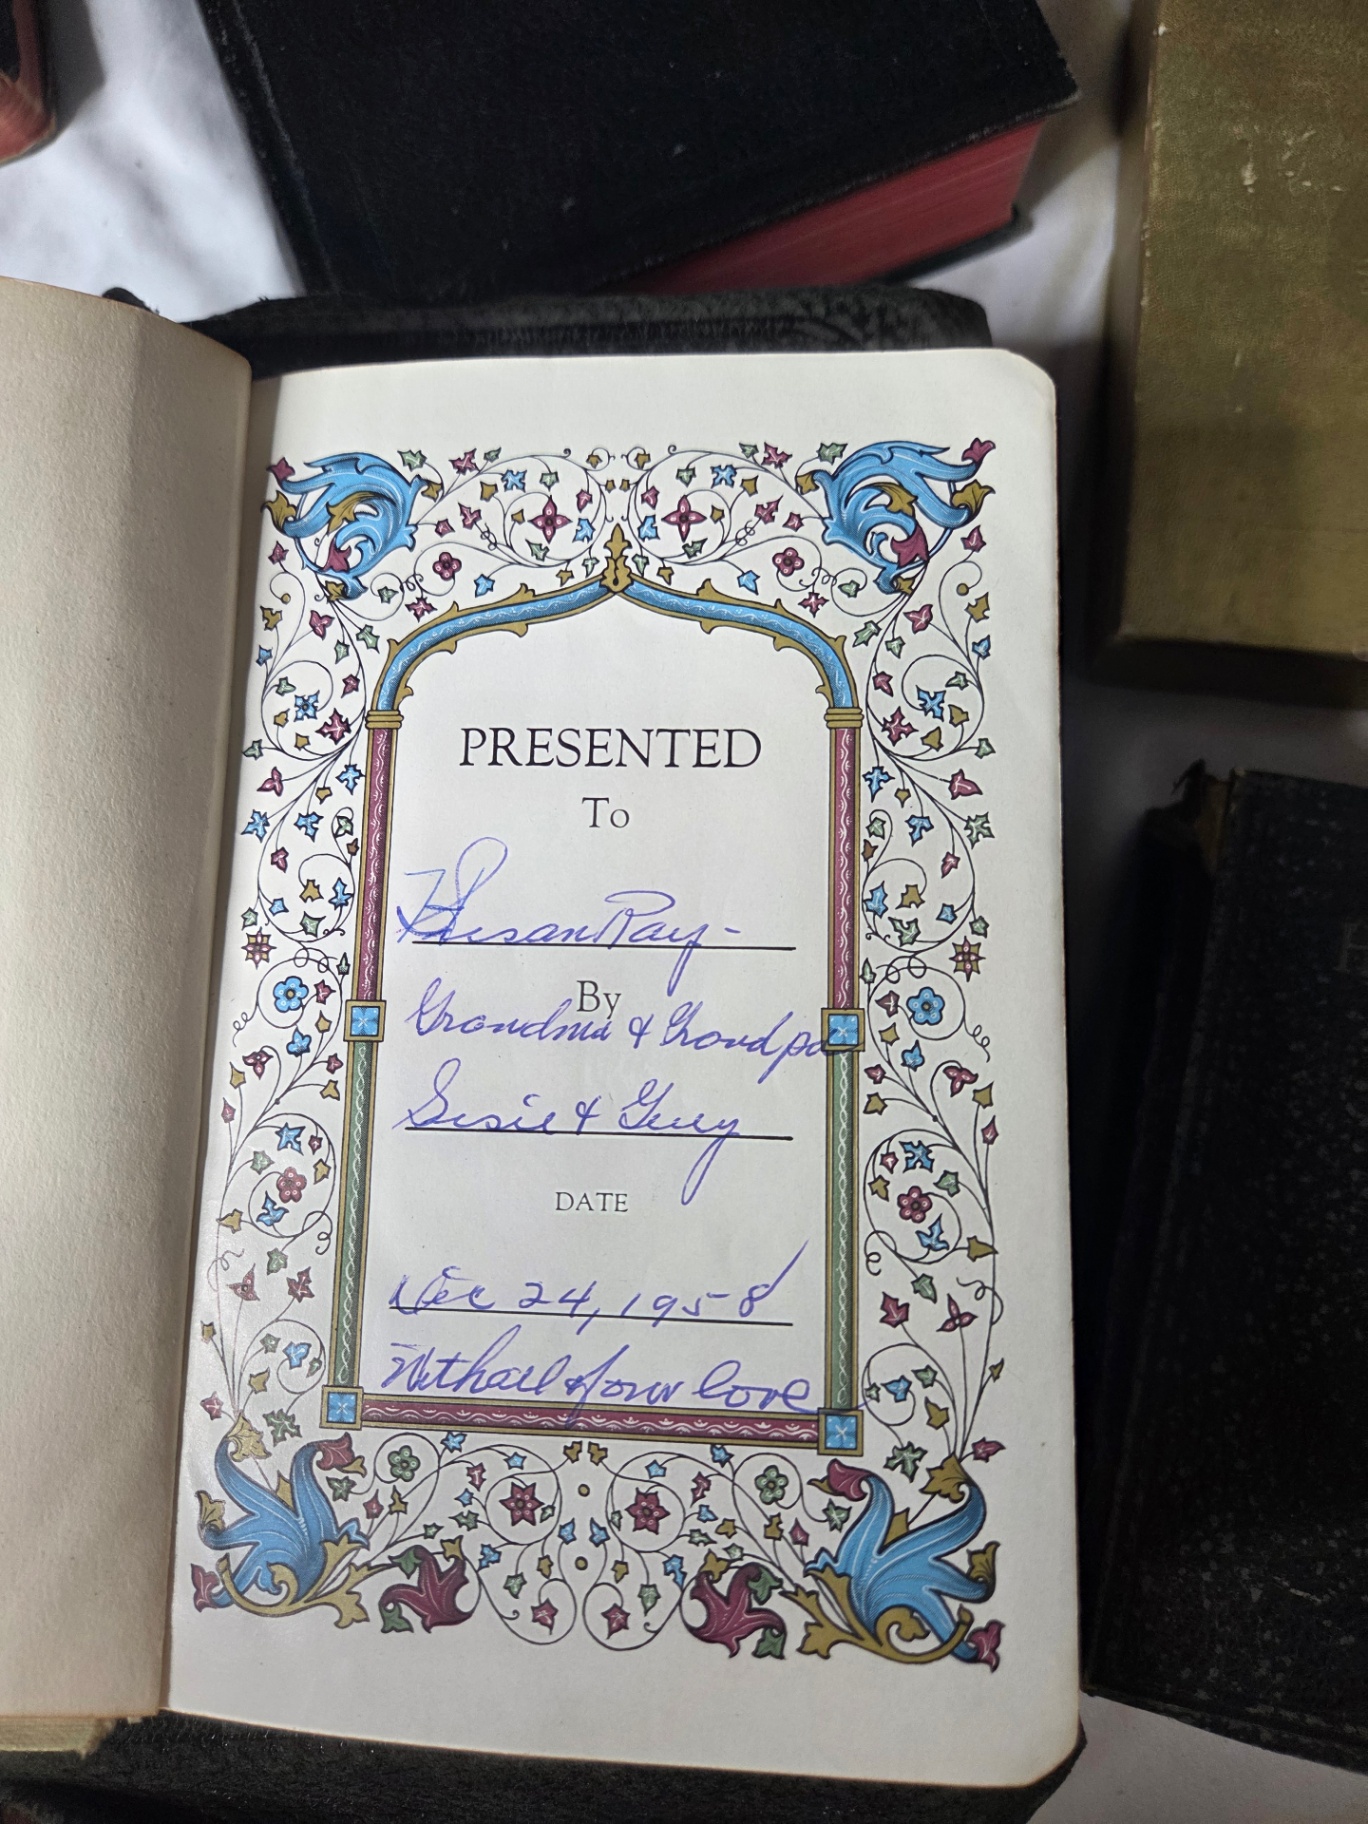 PRESENTED
To
Susan Ray-
By
Grandma & Grandpa
Susie & Guy
DATE
Dec 24, 1958
With all of our love